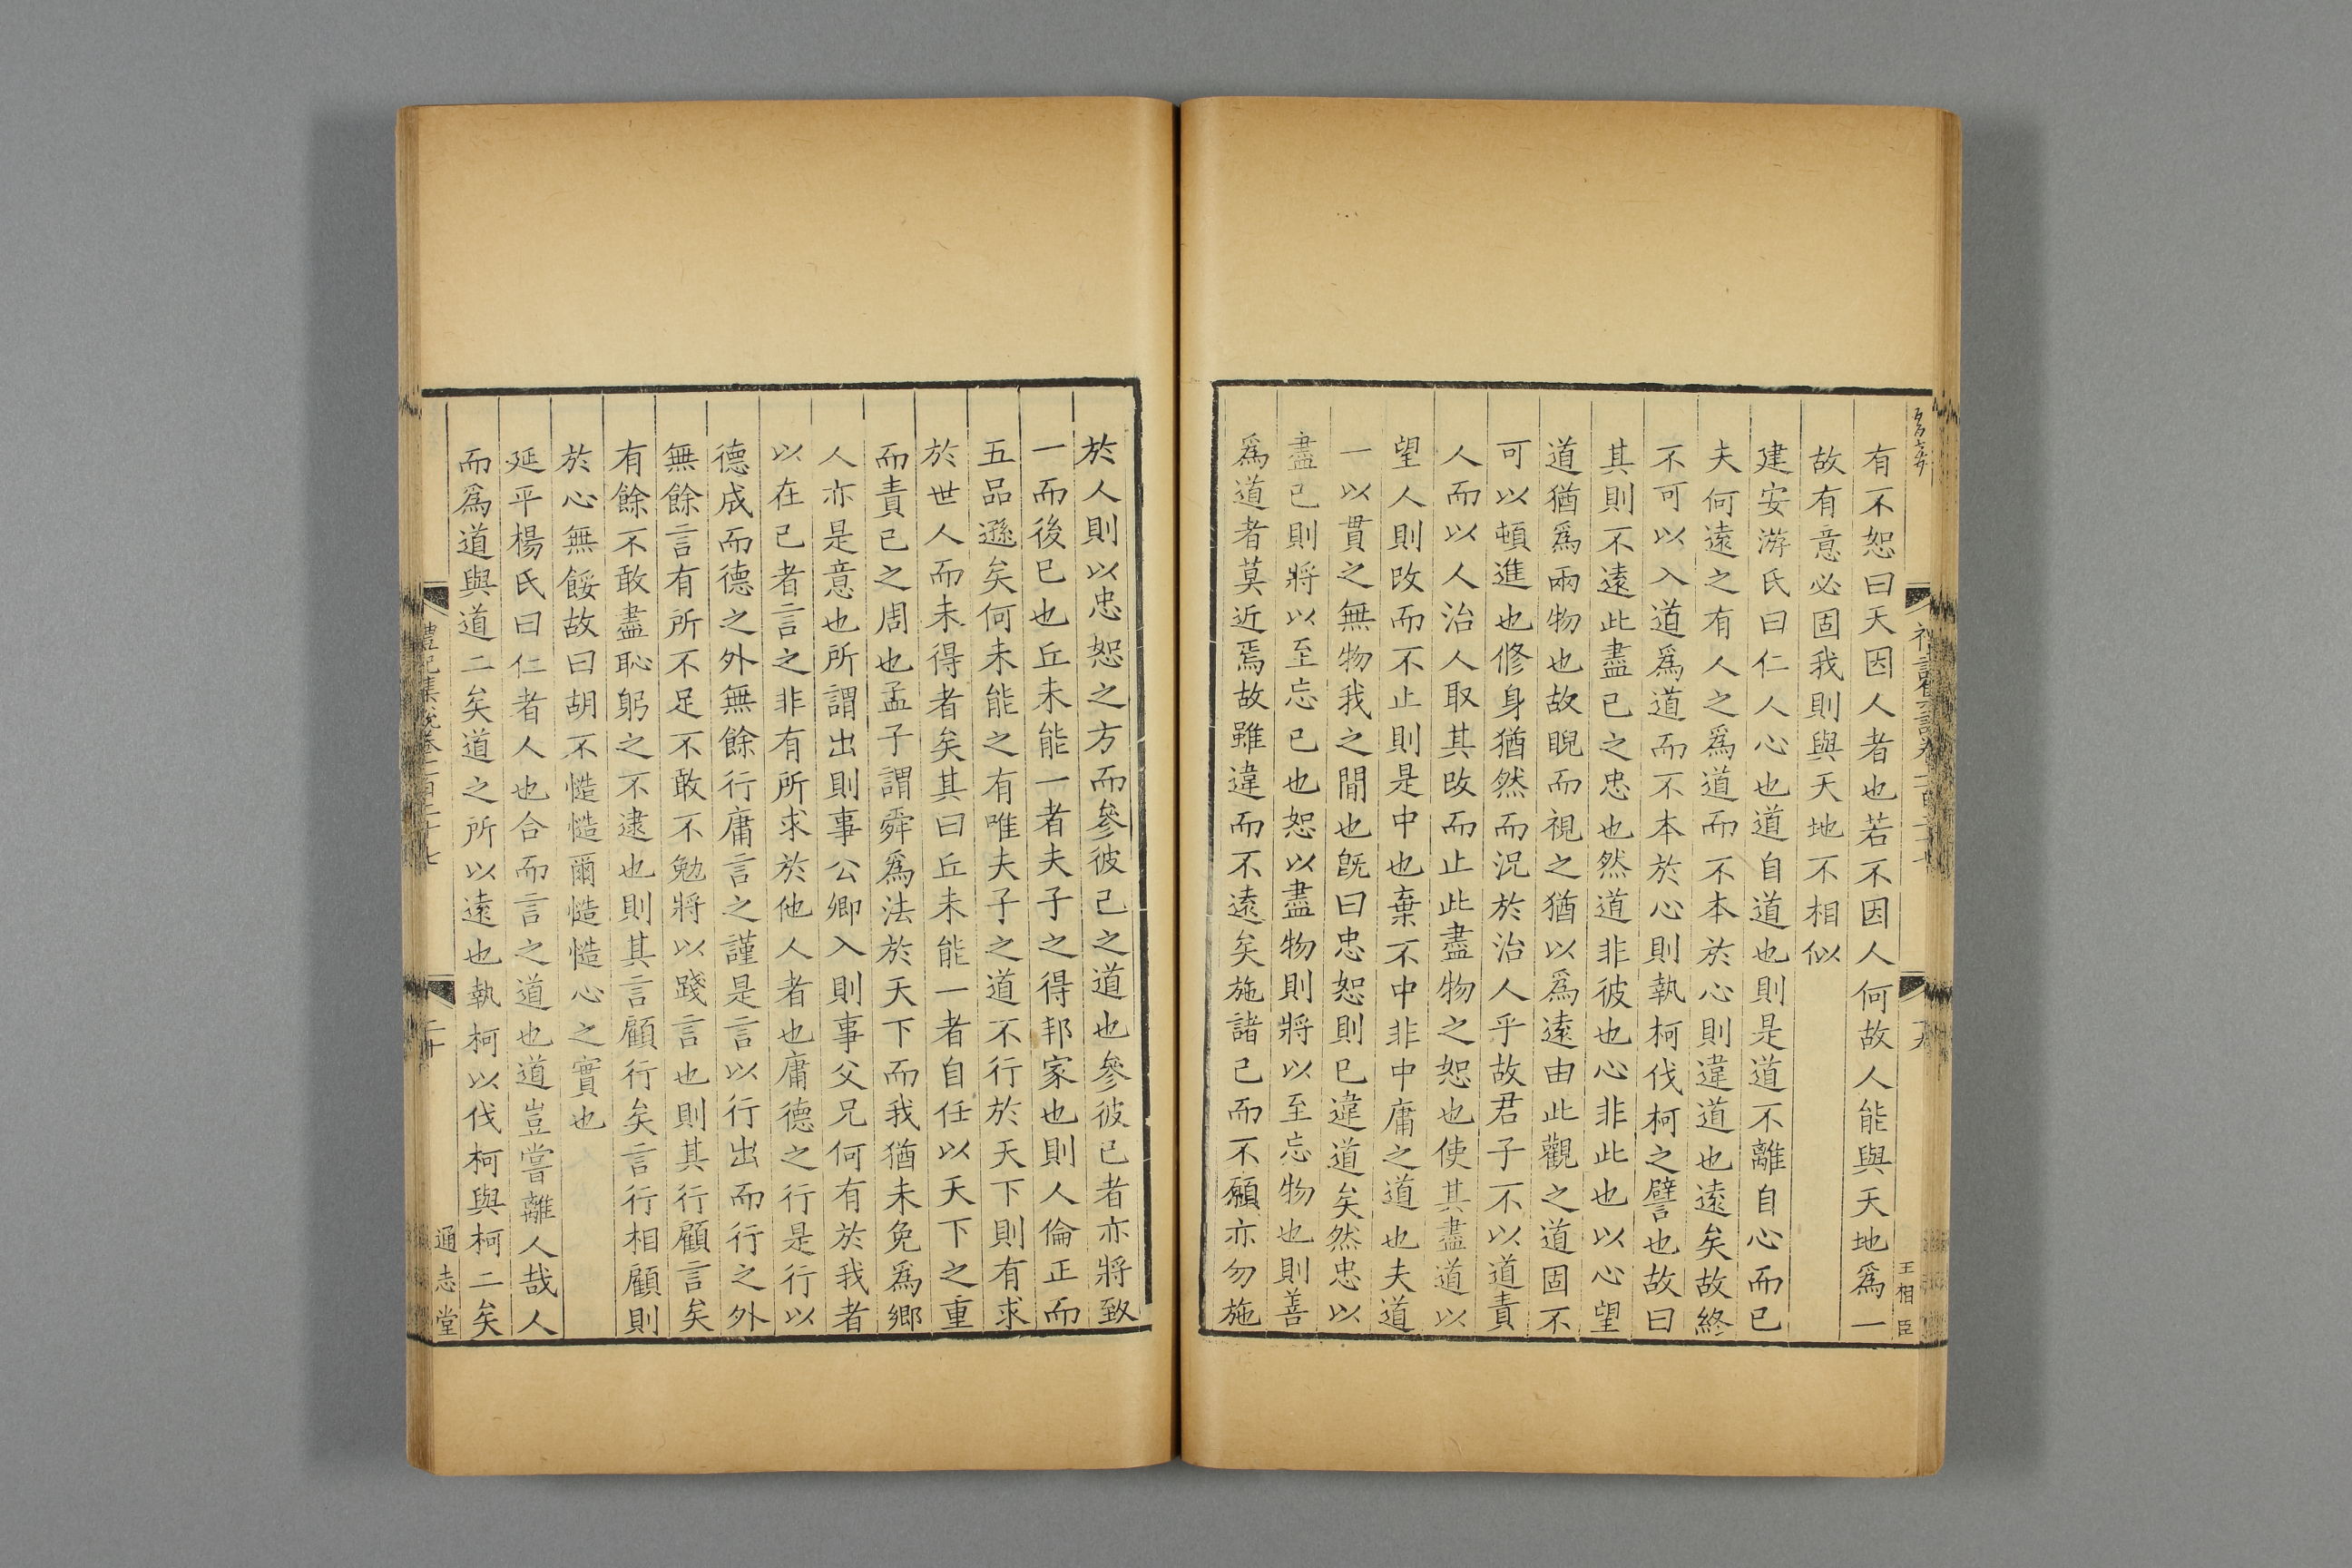 有不恕曰天因人者也若不因人何故人能與天地爲一
故有意必固我則與天地不相似
建安游氏曰仁人心也道自道也則是道不離自心而已
夫何遠之有人之爲道而不本於心則違道也遠矣故終
不可以入道爲道而不本於心則執柯伐柯之譬也故曰
其則不遠此盡已之忠也然道非彼也心非此也以心望
道猶爲兩物也故睨而視之猶以爲遠由此觀之道固不
可以頓進也修身猶然而況於治人乎故君子不以道責
人而以人治人取其改而止此盡物之恕也使其盡道以
望人則改而不止則是中也棄不中非中庸之道也夫道
一以貫之無物我之間也旣曰忠恕則已違道矣然忠以
盡已則將以至忘已也恕以盡物則將以至忘物也則善
爲道者莫近焉故雖違而不遠矣施諸己而不願亦勿施
於人則以忠恕之方而參彼己之道也參彼已者亦將致
一而後已也丘未能一者夫子之得邦家也則人倫正而
五品遜矣何未能之有唯夫子之道不行於天下則有求
於世人而未得者矣其曰丘未能一者自任以天下之重
而責已之周也孟子謂舜爲法於天下而我猶未免爲鄉
人亦是意也所謂出則事公卿入則事父兄何有於我者
以在己者言之非有所求於他人者也庸德之行是行以
德成而德之外無餘行庸言之謹是言以行出而行之外
無餘言有所不足不敢不勉將以踐言也則其行顧言矣
有餘不敢盡恥躬之不逮也則其言顧行矣言行相顧則
於心無餒故曰胡不慥慥爾慥慥心之實也
延平楊氏曰仁者人也合而言之道也道豈嘗離人哉人
而爲道與道二矣道之所以遠也執柯以伐柯與柯二矣
禮記集說卷一百二十七
二十
通志堂
王相臣